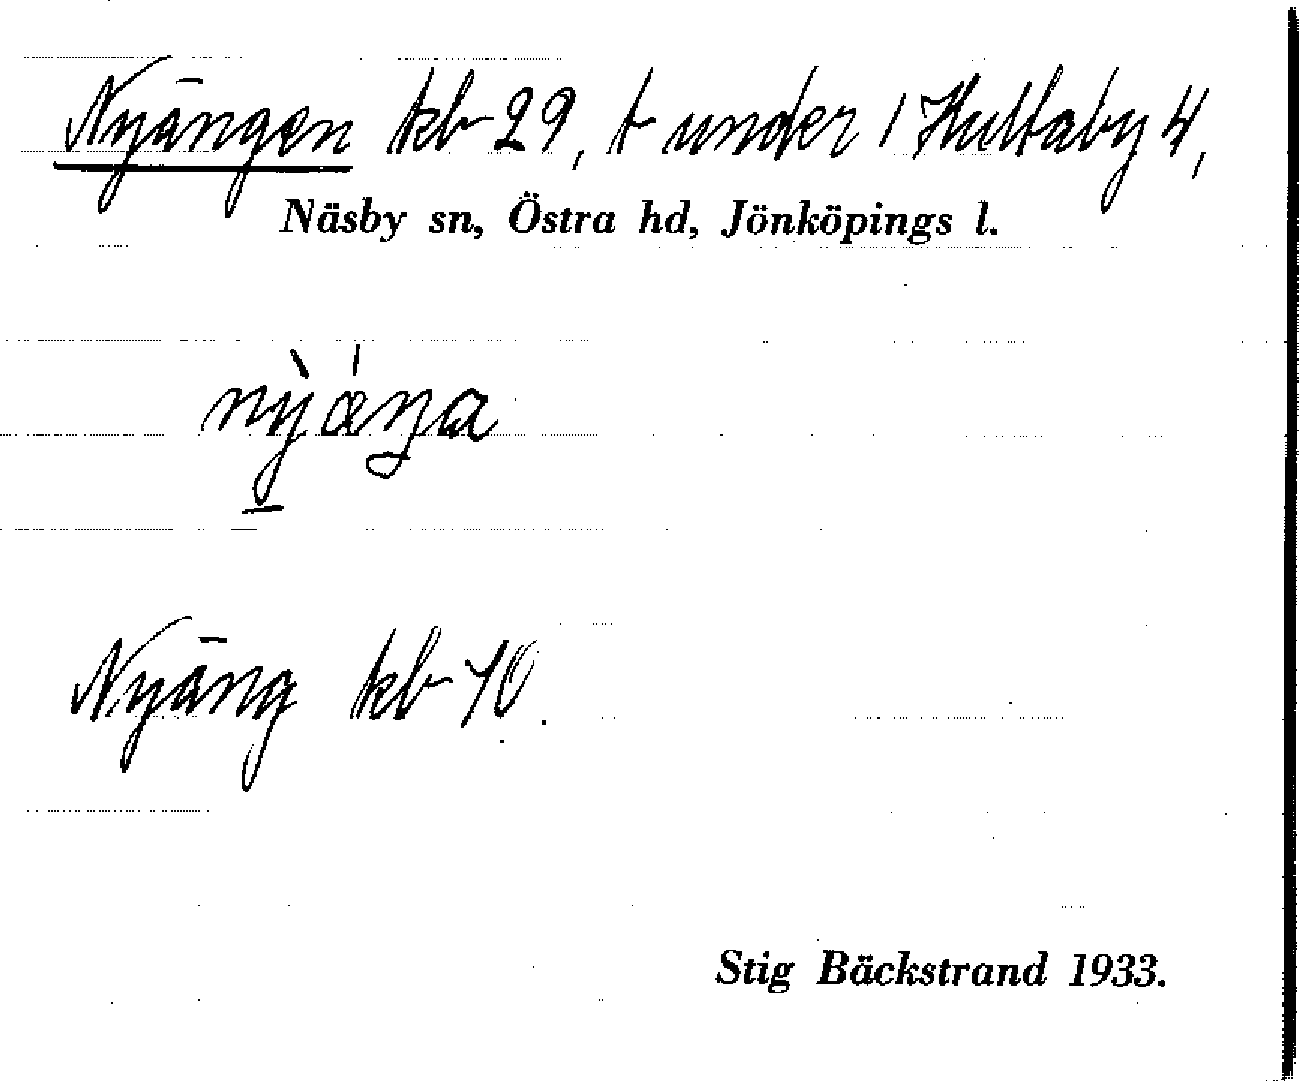 Nyängen kb 29, t under 1 Hultaby 4,
Näsby sn, Östra hd, Jönköpings l.
nỳǽŋa
Nyäng kb 10.
Stig Bäckstrand 1933.